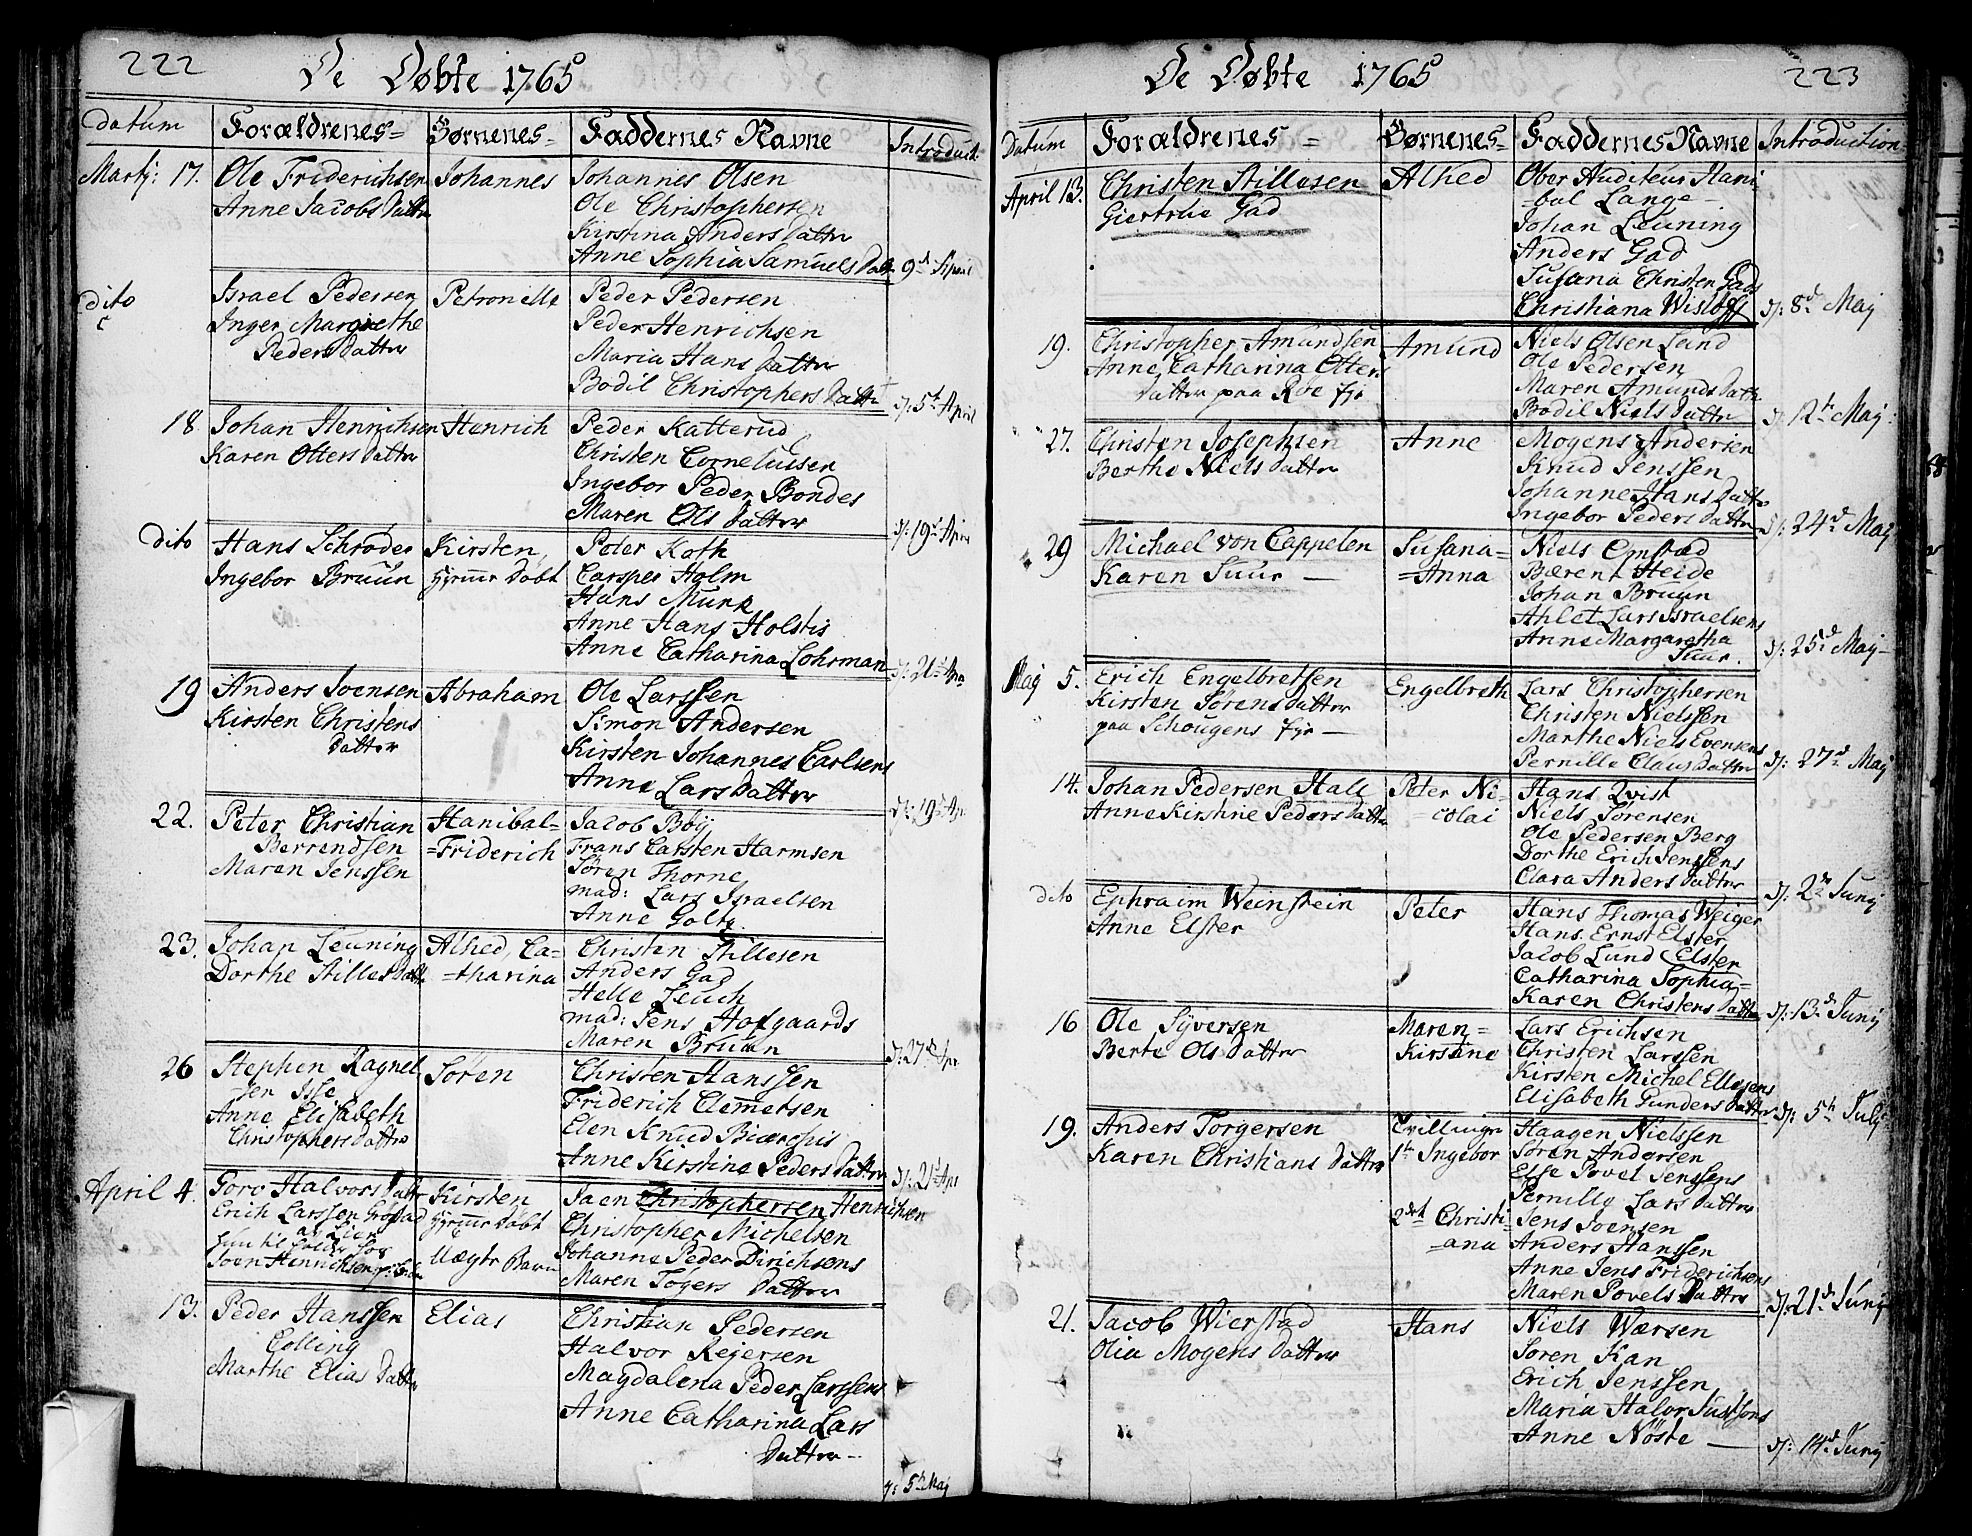 222
De Døbte 1765
Datum
Forældrenes=
Børnenes=
Faddernes Navne
Introduct:
Martij: 17.
Ole Friderichsen
Anne Jacobs Datter
Johannes
Johannes Olsen
Ole Christophersen
Kirstina Anders Datter
Anne Sophia Samuels Datter
9d April
dito
Israel Pedersen
Inger Margrethe
Peders Datter
Petronelle
Peder Pedersen
Peder Henrichsen
Maria Hans Datter
Bodil Christophers Datter
d: 5t April
18.
Johan Henrichsen
Karen Otters Datter
Henrich
Peder Katterud
Christen Corneliusen
Ingebor Peder Bondes
Maren Ols Datter
d: 19d April
Dito
Hans Schrøder
Ingebor Bruun
Kirsten,
Hjemme Døbt
Peter Koth
Carsper Holm
Hans Munk
Anne Hans Holstis
Anne Catharina Lohrman
d: 21d Apr
19
Anders Joensen
Kirsten Christens
Datter
Abraham
Ole Larssen
Simon Andersen
Kirsten Johannes Carlsens
Anne Lars Datter
d: 19d Apr
22.
Peter Christian
Berrendsen
Maren Jenssen
Hanibal=
=Friderich
Jacob Böij
Frans Carsten Harmsen
Søren Thorne
mad: Lars Israelsen
Anne Holte
23.
Johan Leuning
Dorthe Stilles Datt
Alhed, Ca=
=tharina
Christen Stillesen
Anders Gad
Helle Leuch
mad: Jens Hofgaards
Maren Bruun
d: 27d Apr
26
Stephen Ragnel
sen Isse
Anne Elisabeth
Christophers Datter
Søren
Christen Hanssen
Friderich Clemetsen
Elen Knud Biærchus
Anne Kirstine Peders Datter
d: 21d Apr
April 4.
Goro Halvors Datter
Erich Larssen Grostad
af Lier
Joen Henrichsen
Kirsten
Hjemme Døbt
Uægte Barn
Jaen Christophersen Henrichsen
Christopher Michelsen
Johanne Peder Dirichsens
Maren Togers Datter
13.
Peder Hanssen
Colling
Marthe Elias Datter
Elias
Christian Pedersen
Halvor Rejersen
Magdalena Peder Larssens
Anne Catharina Lars
Datter—
d: 5t Maj
223
De Døbte 1765
Datum
Forældrenes =
Børnenes=
Faddernes Navne
Introduction=
April 13.
Christen Stillesen
Giertrue Gad
Alhed
Ober Auditeur Hani
=bal Lange—
Johan Leuning
Anders Gad
Susana Christen Gads
Christiana Wisloff
d: 8d Maj
19.
Christopher Amundsen
Anne Catharina Otters
Datter paa Roe fjr
Amund
Niels Olsen Lund
Ole Pedersen
Maren Amunds Datt
Bodil Niels Datter
d: 12t Maj
27.
Christen Josephsen
Berthe Niels Datter
Anne
Mogens Andersen
Knud Jenssen
Johanne Hans Datter
Ingebor Peders Datter
d: 24d Maj
29
Michael von Cappelen
Karen Tuur —
Susana=
=Anna
Niels Omstad
Bærent Heide
Johan Bruun
Ahlet Lars Israelsens
Anne Margaretha
Tuur.
d: 25d Maj—
Maj 5.
Erich Engelbretsen
Kirsten Sørens Datter
paa Schougens fjr—
Engelbreth
Lars Christophersen
Christen Nielssen
Marthe Niels Evensens
Pernille Claus Datter
d: 27d Maj
14.
Johan Pedersen Hall
Anne Kirstine Peders Datter
Peter Ni=
=colai
Hans Qvist
Niels Sørensen
Ole Pedersen Berg
Dorthe Erich Jenssens
Clara Anders Datter
d: 2d Junij
dito
Ephraim Weinstein
Anne Elster
Peter
Hans Thomas Weiger
Hans Ernst Elster
Jacob Lund Elster
Catharina Sophia=
Karen Christens Datter
d: 13d Junij
16
Ole Syversen
Berte Ols Datter
Maren=
Kirstine
Lars Erichsen
Christen Larssen
Kirsten Michel Ellesens
Elisabeth Gunders Datter
d: 5t Julij
19.
Anders Torgersen
Karen Christians Datter
Tvillinger
1t Ingebor
2det Christi=
=ana
Haagen Nielssen
Søren Andersen
Else Povel Jenssens
Pernille Lars Datter
Jens Joensen
Anders Hanssen
Anne Jens Friderichsens
Maren Povels Datter
d: 21d Junij
21.
Jacob Wierstad
Olia Mogens Datter
Hans
Niels Wærsen
Søren Kan
Erich Jenssen
Maria Halvr Justsons
Anne Nøste —
d: 14d Junij